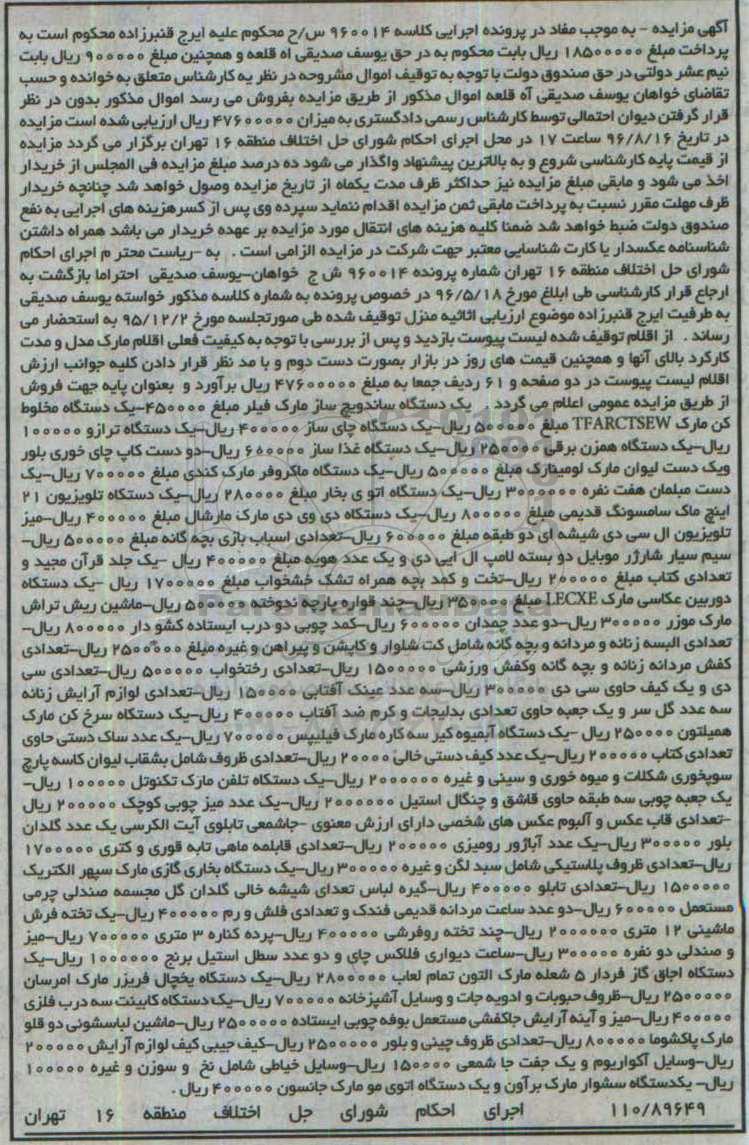 آگهی مزایده - به موجب مفاد در پرونده اجرایی کلاسه ۹۶۰۰۱۴ س/ح محکوم علیه ایرج قنبرزاده محکوم است به
پرداخت مبلغ ۱۸۵۰۰۰۰۰ ریال بابت محکوم به در حق یوسف صدیقی اه قلعه و همچنین مبلغ ۹۰۰۰۰۰ ریال بابت
نیم عشر دولتی در حق صندوق دولت با توجه به توقیف اموال مشروحه در نظر یه کارشناس متعلق به خوانده و حسب
تقاضای خواهان یوسف صدیقی آه قلعه اموال مذکور از طریق مزایده بفروش می رسد اموال مذکور بدون در نظر
قرار گرفتن دیوان احتمالی توسط کارشناس رسمی دادگستری به میزان ۴۷۶۰۰۰۰۰ ریال ارزیابی شده است مزایده
در تاریخ ۹۶/۸/۱۶ ساعت ۱۷ در محل اجرای احکام شورای حل اختلاف منطقه ۱۶ تهران برگزار می گردد مزایده
از قیمت پایه کارشناسی شروع و به بالاترین پیشنهاد واگذار می شود ده درصد مبلغ مزایده فی المجلس از خریدار
اخذ می شود و مابقی مبلغ مزایده نیز حداکثر ظرف مدت یکماه از تاریخ مزایده وصول خواهد شد چنانچه خریدار
ظرف مهلت مقرر نسبت به پرداخت مابقی ثمن مزایده اقدام ننماید سپرده وی پس از کسرهزینه های اجرایی به نفع
صندوق دولت ضبط خواهد شد ضمنا کلیه هزینه های انتقال مورد مزایده بر عهده خریدار می باشد همراه داشتن
شناسنامه عکسدار یا کارت شناسایی معتبر جهت شرکت در مزایده الزامی است . به -ریاست محتر م اجرای احکام
شورای حل اختلاف منطقه ۱۶ تهران شماره پرونده ۹۶۰۰۱۴ ش ج خواهان-یوسف صدیقی احتراما بازگشت به
ارجاع قرار کارشناسی طی ابلاغ مورخ ۹۶/۵/۱۸ در خصوص پرونده به شماره کلاسه مذکور خواسته یوسف صدیقی
به طرفیت ایرج قنبرزاده موضوع ارزیابی اثاثیه منزل توقیف شده طی صورتجلسه مورخ ۹۵/۱۲/۲ به استحضار می
رساند . از اقلام توقیف شده لیست پیوست بازدید و پس از بررسی با توجه به کیفیت فعلی اقلام مارک مدل و مدت
کارکرد بالای آنها و همچنین قیمت های روز در بازار بصورت دست دوم و با مد نظر قرار دادن کلیه جوانب ارزش
اقلام لیست پیوست در دو صفحه و ۶۱ ردیف جمعا به مبلغ ۴۷۶۰۰۰۰۰ ریال برآورد و بعنوان پایه جهت فروش
از طریق مزایده عمومی اعلام می گردد . یک دستگاه ساندویچ ساز مارک فیلر مبلغ ۴۵۰۰۰۰-یک دستگاه مخلوط
کن مارک TFARCTSEW مبلغ ۵۰۰۰۰۰ ریال-یک دستگاه چای ساز ۴۰۰۰۰۰ ریال-یک دستگاه ترازو ۱۰۰۰۰۰
ریال-یک دستگاه همزن برقی ۲۵۰۰۰۰ ریال-یک دستگاه غذا ساز ۶۰۰۰۰۰ ریال-دو دست کاپ چای خوری بلور
ویک دست لیوان مارک لومینارک مبلغ ۵۰۰۰۰۰ ریال-یک دستگاه ماکروفر مارک کندی مبلغ ۷۰۰۰۰۰ ریال-یک
دست مبلمان هفت نفره ۳۰۰۰۰۰۰ ریال-یک دستگاه اتو ی بخار مبلغ ۲۸۰۰۰۰ ریال-یک دستگاه تلویزیون ۲۱
اینچ ماک سامسونگ قدیمی مبلغ ۸۰۰۰۰۰ ریال-یک دستگاه دی وی دی مارک مارشال مبلغ ۴۰۰۰۰۰ ریال-میز
تلویزیون ال سی دی شیشه ای دو طبقه مبلغ ۶۰۰۰۰۰ ریال-تعدادی اسباب بازی بچه گانه مبلغ ۵۰۰۰۰۰ ریال-
سیم سیار شارژر موبایل دو بسته لامپ ال ایی دی و یک عدد هویه مبلغ ۴۰۰۰۰۰ ریال -یک جلد قرآن مجید و
تعدادی کتاب مبلغ ۲۰۰۰۰۰ ریال-تخت و کمد بچه همراه تشک خشخواب مبلغ ۱۷۰۰۰۰۰ ریال -یک دستگاه
دوربین عکاسی مارک LECXE مبلغ ۳۵۰۰۰۰ ریال-چند قواره پارچه ندوخته ۵۰۰۰۰۰ ریال-ماشین ریش تراش
مارک موزر ۳۰۰۰۰۰ ریال-دو عدد چمدان ۶۰۰۰۰۰ ریال-کمد چوبی دو درب ایستاده کشو دار ۸۰۰۰۰۰ ریال-
تعدادی البسه زنانه و مردانه و بچه گانه شامل کت شلوار و کاپشن و پیراهن و غیره مبلغ ۲۵۰۰۰۰۰ ریال-تعدادی
کفش مردانه زنانه و بچه گانه وکفش ورزشی ۱۵۰۰۰۰۰ ریال-تعدادی رختخواب ۵۰۰۰۰۰ ریال-تعدادی سی
دی و یک کیف حاوی سی دی ۳۰۰۰۰۰ ریال-سه عدد عینک آفتابی ۱۵۰۰۰۰ ریال-تعدادی لوازم آرایش زنانه
سه عدد گل سر و یک جعبه حاوی تعدادی بدلیجات و کرم ضد آفتاب ۴۰۰۰۰۰ ریال-یک دستگاه سرخ کن مارک
همیلتون ۲۵۰۰۰۰ ریال -یک دستگاه آبمیوه گیر سه کاره مارک فیلیپس ۷۰۰۰۰۰ ریال-یک عدد ساک دستی حاوی
تعدادی کتاب ۲۰۰۰۰۰ ریال-یک عدد کیف دستی خالی ۲۰۰۰۰ ریال-تعدادی ظروف شامل بشقاب لیوان کاسه پارچ
سوپخوری شکلات و میوه خوری و سینی و غیره ۲۰۰۰۰۰۰ ریال-یک دستگاه تلفن مارک تکنوتل ۱۰۰۰۰۰ ریال-
یک جعبه چوبی سه طبقه حاوی قاشق و چنگال استیل ۲۰۰۰۰۰۰ ریال-یک عدد میز چوبی کوچک ۲۰۰۰۰۰ ریال
-تعدادی قاب عکس و آلبوم عکس های شخصی دارای ارزش معنوی -جاشمعی تابلوی آیت الکرسی یک عدد گلدان
بلور ۳۰۰۰۰۰ ریال-یک عدد آباژور رومیزی ۲۰۰۰۰۰ ریال-تعدادی قابلمه ماهی تابه قوری و کتری ۱۷۰۰۰۰۰
ریال-تعدادی ظروف پلاستیکی شامل سبد لگن و غیره ۳۰۰۰۰۰ ریال-یک دستگاه بخاری گازی مارک سپهر الکتریک
۱۵۰۰۰۰۰ ریال-تعدادی تابلو ۴۰۰۰۰۰ ریال-گیره لباس تعدای شیشه خالی گلدان گل مجسمه صندلی چرمی
مستعمل ۶۰۰۰۰۰ ریال-دو عدد ساعت مردانه قدیمی فندک و تعدادی فلش و رم ۴۰۰۰۰۰ ریال-یک تخته فرش
ماشینی ۱۲ متری ۲۰۰۰۰۰۰ ریال-چند تخته روفرشی ۴۰۰۰۰۰ ریال-پرده کناره ۳ متری ۷۰۰۰۰۰ ریال-میز
و صندلی دو نفره ۳۰۰۰۰۰ ریال-ساعت دیواری فلاکس چای و دو عدد سطل استیل برنج ۱۰۰۰۰۰۰ ریال-یک
دستگاه اجاق گاز فردار ۵ شعله مارک التون تمام لعاب ۲۸۰۰۰۰۰ ریال-یک دستگاه یخچال فریزر مارک امرسان
۲۵۰۰۰۰۰ ریال-ظروف حبوبات و ادویه جات و وسایل آشپزخانه ۷۰۰۰۰۰ ریال-یک دستگاه کابینت سه درب فلزی
۴۰۰۰۰۰ ریال-میز و آینه آرایش جاکفشی مستعمل بوفه چوبی ایستاده ۲۵۰۰۰۰۰ ریال-ماشین لباسشوئی دو قلو
مارک پاکشوما ۸۰۰۰۰۰ ریال-تعدادی ظروف چینی و بلور ۲۵۰۰۰۰۰ ریال-کیف جیبی کیف لوازم آرایش ۲۰۰۰۰۰
ریال-وسایل آکواریوم و یک جفت جا شمعی ۱۵۰۰۰۰ ریال-وسایل خیاطی شامل نخ و سوزن و غیره ۱۰۰۰۰۰
ریال- یکدستگاه سشوار مارک برآون و یک دستگاه اتوی مو مارک جانسون ۴۰۰۰۰۰ ریال .
۱۱۰/۸۹۶۴۹ اجرای احکام شورای حل اختلاف منطقه ۱۶ تهران